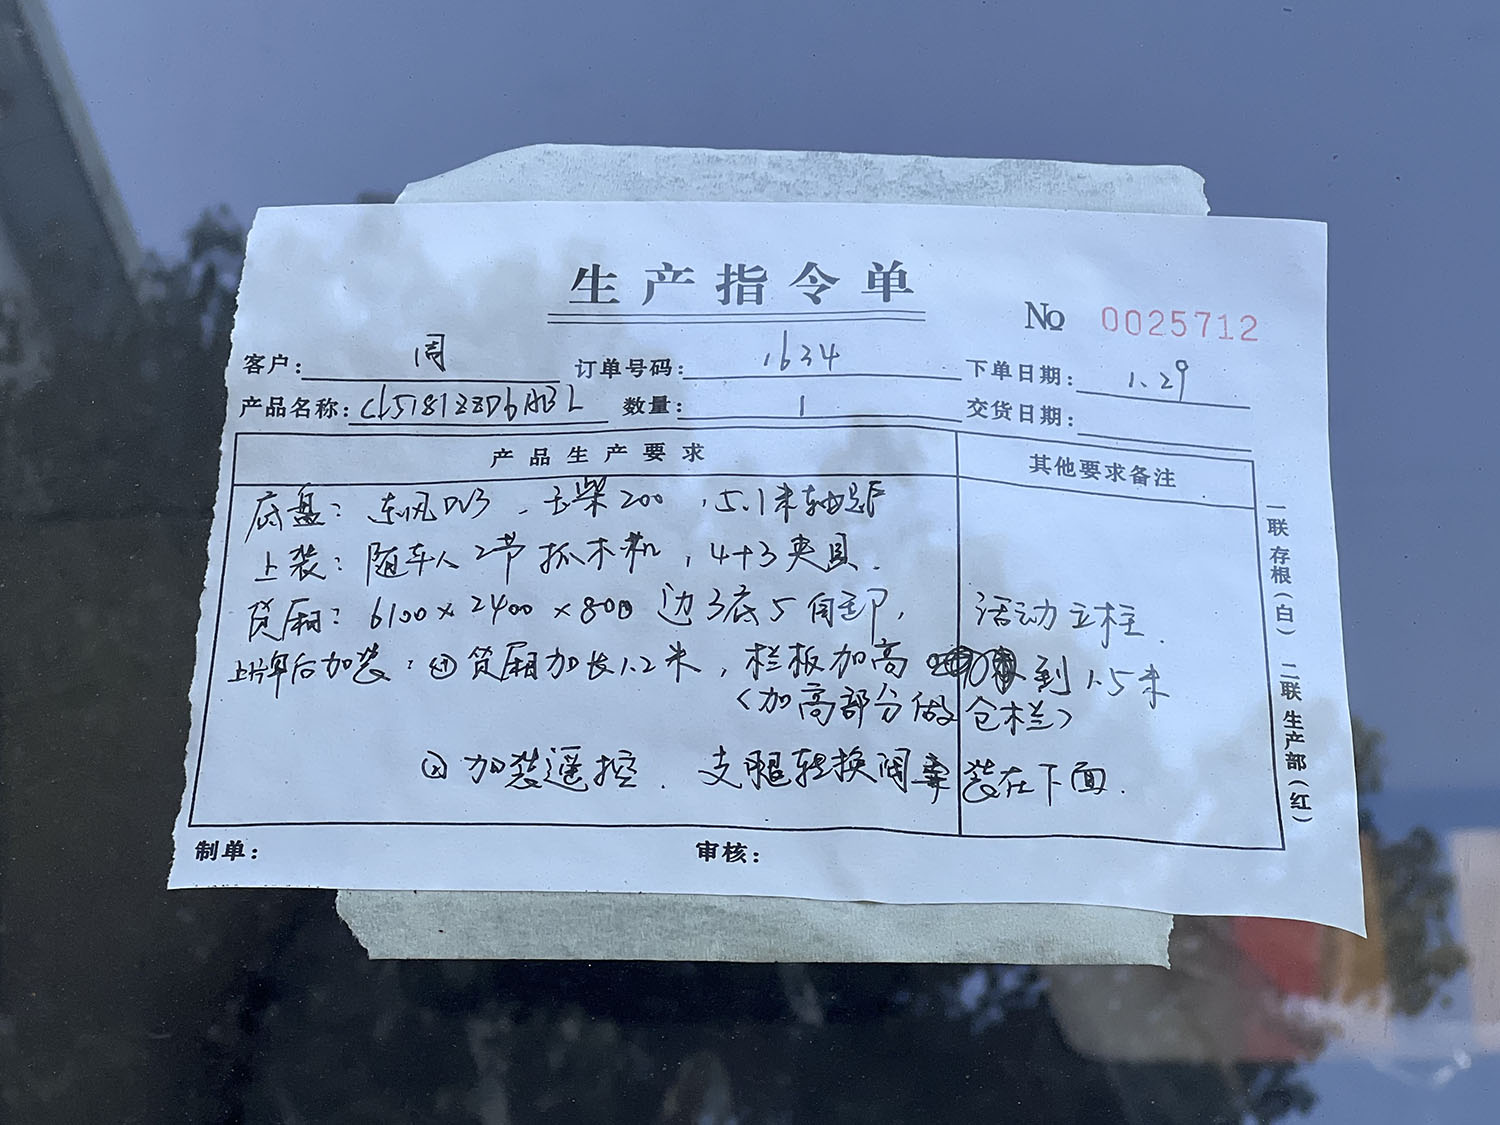 生产指令单
No 0025712
客户: 周 订单号码: 1634 下单日期: 1.29
产品名称: CLS181ZZD6ABL 数量: 1 交货日期:
产品生产要求 其他要求备注
底盘: 东风DV3、玉柴200,5.1米轴距
上装: 随车人2节抓木机,4+3夹具.
货厢: 6100×2400×800 边3底5自卸, 活动立柱.
上牌后加装: ① 货厢加长1.2米,栏板加高 到1.5米
(加高部分做仓栏)
② 加装遥控. 支腿转换阀 装在下面.
制单: 审核:
一联存根(白) 二联生产部(红)